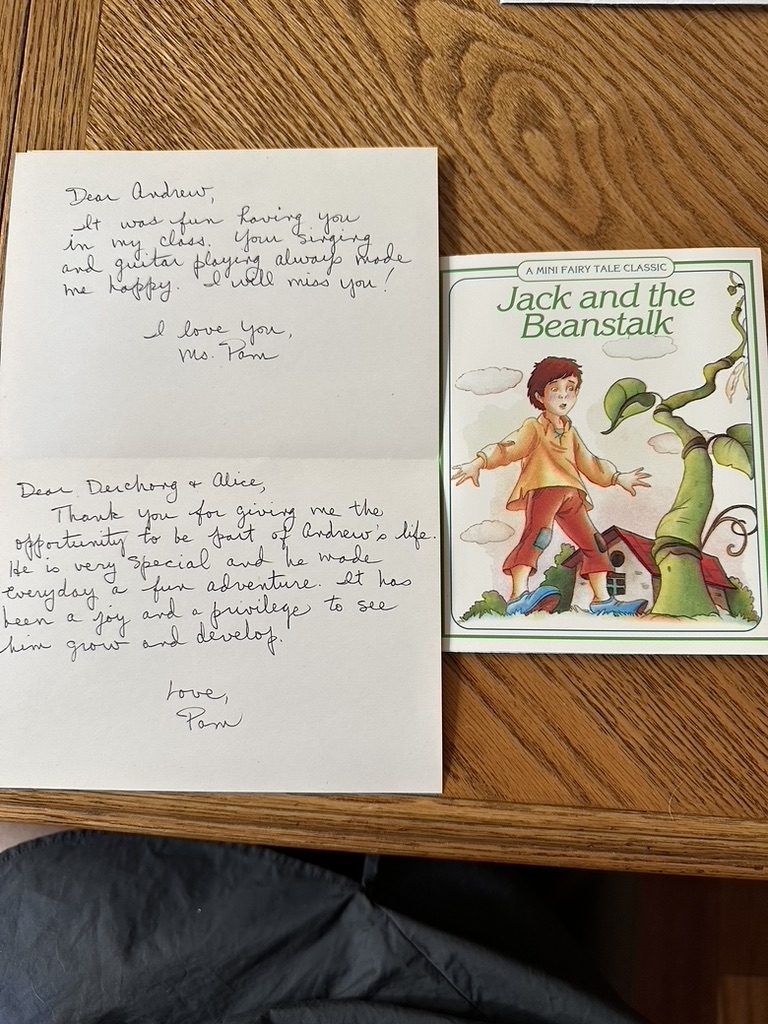 Dear Andrew,
It was fun having you
in my class. Your singing
and guitar playing always made
me happy. I will miss you!
I love you,
Ms. Pam
Dear Derchong & Alice,
Thank you for giving me the
opportunity to be part of Andrew's life.
He is very special and he made
everyday a fun adventure. It has
been a joy and a privilege to see
him grow and develop.
Love,
Pam
A MINI FAIRY TALE CLASSIC
Jack and the
Beanstalk